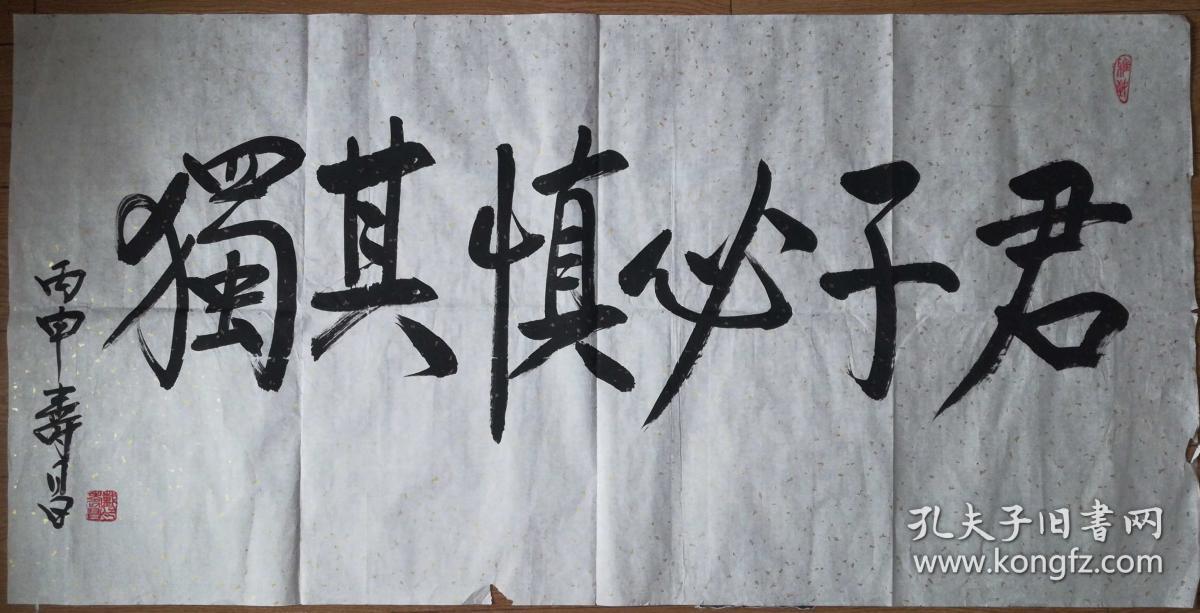 君子必慎其獨
丙申壽昌
孔夫子旧書网
www.kongfz.com